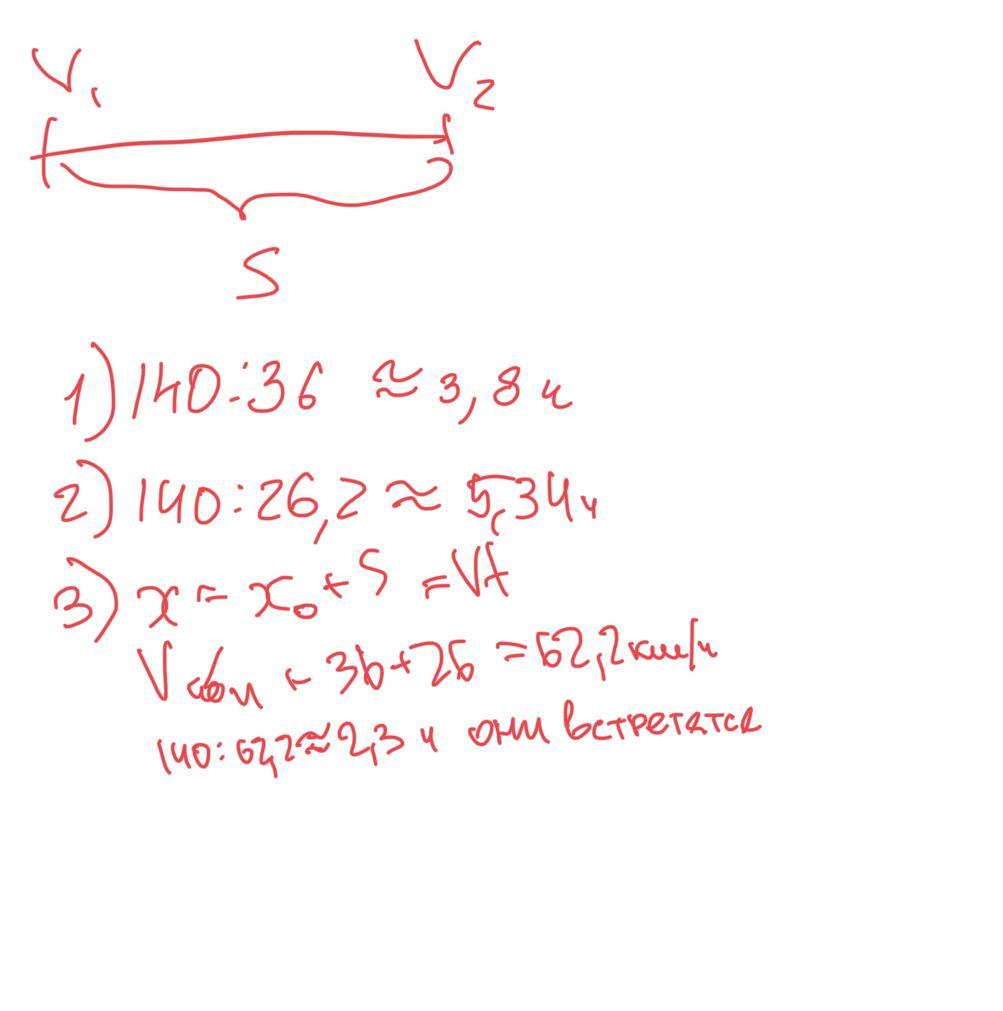 V₁ V₂
S
1) 140:36 ≈ 3,8 ч
2) 140:26,2 ≈ 5,34ч
3) x = x₀ + S = Vt
V сбл = 36+26 = 62,2 км/ч
140:62,2≈2,3 ч они встретятся